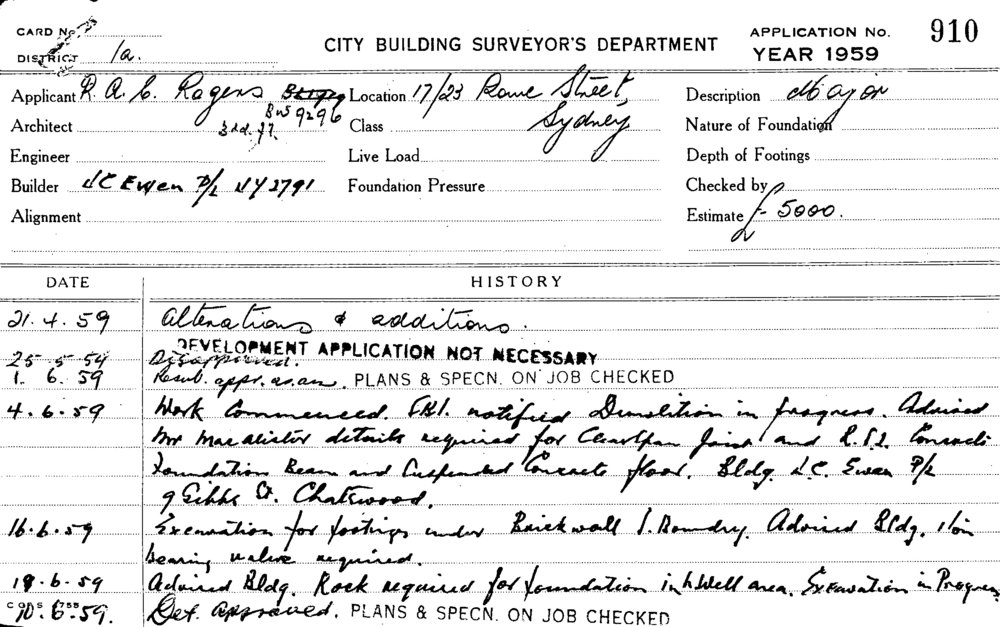 CARD No.
DISTRICT 1a.
CITY BUILDING SURVEYOR'S DEPARTMENT
APPLICATION No. 910
YEAR 1959
Applicant R. A. C. Rogers BW9296 Location 17/23 Rowe Street, Description Major
Architect Class Sydney Nature of Foundation
Engineer Live Load Depth of Footings
Builder J C Ewen P/L JY2791 Foundation Pressure Checked by
Alignment Estimate £ 5000.
DATE HISTORY
21.4.59 Alterations & additions.
DEVELOPMENT APPLICATION NOT NECESSARY
25.5.59 Disapproved.
1.6.59 Resub. appr. as am. PLANS & SPECN. ON JOB CHECKED
4.6.59 Work Commenced. notified Demolition in progress. Advised
Mr Macalister details required for Joint and Concrete
Foundation Beam and Suspended Concrete floor. Bldg. J.C. Ewen P/L
9 Gibbs St. Chatswood.
16.6.59 Excavation for footings under Brick wall Boundry. Advised Bldg.
bearing value required.
19.6.59 Advised Bldg. Rock required for foundation in Well area. Excavation in Progress
Det. approved. PLANS & SPECN. ON JOB CHECKED